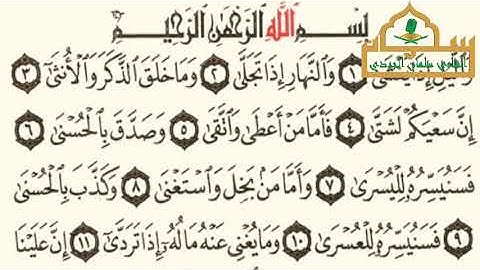 بِسْمِ اللَّهِ الرَّحْمَٰنِ الرَّحِيمِ
وَاللَّيْلِ إِذَا يَغْشَىٰ ١ وَالنَّهَارِ إِذَا تَجَلَّىٰ ٢ وَمَا خَلَقَ الذَّكَرَ وَالْأُنثَىٰ ٣
إِنَّ سَعْيَكُمْ لَشَتَّىٰ ٤ فَأَمَّا مَنْ أَعْطَىٰ وَاتَّقَىٰ ٥ وَصَدَّقَ بِالْحُسْنَىٰ ٦
فَسَنُيَسِّرُهُ لِلْيُسْرَىٰ ٧ وَأَمَّا مَن بَخِلَ وَاسْتَغْنَىٰ ٨ وَكَذَّبَ بِالْحُسْنَىٰ
٩ فَسَنُيَسِّرُهُ لِلْعُسْرَىٰ ١٠ وَمَا يُغْنِي عَنْهُ مَالُهُ إِذَا تَرَدَّىٰ ١١ إِنَّ عَلَيْنَا